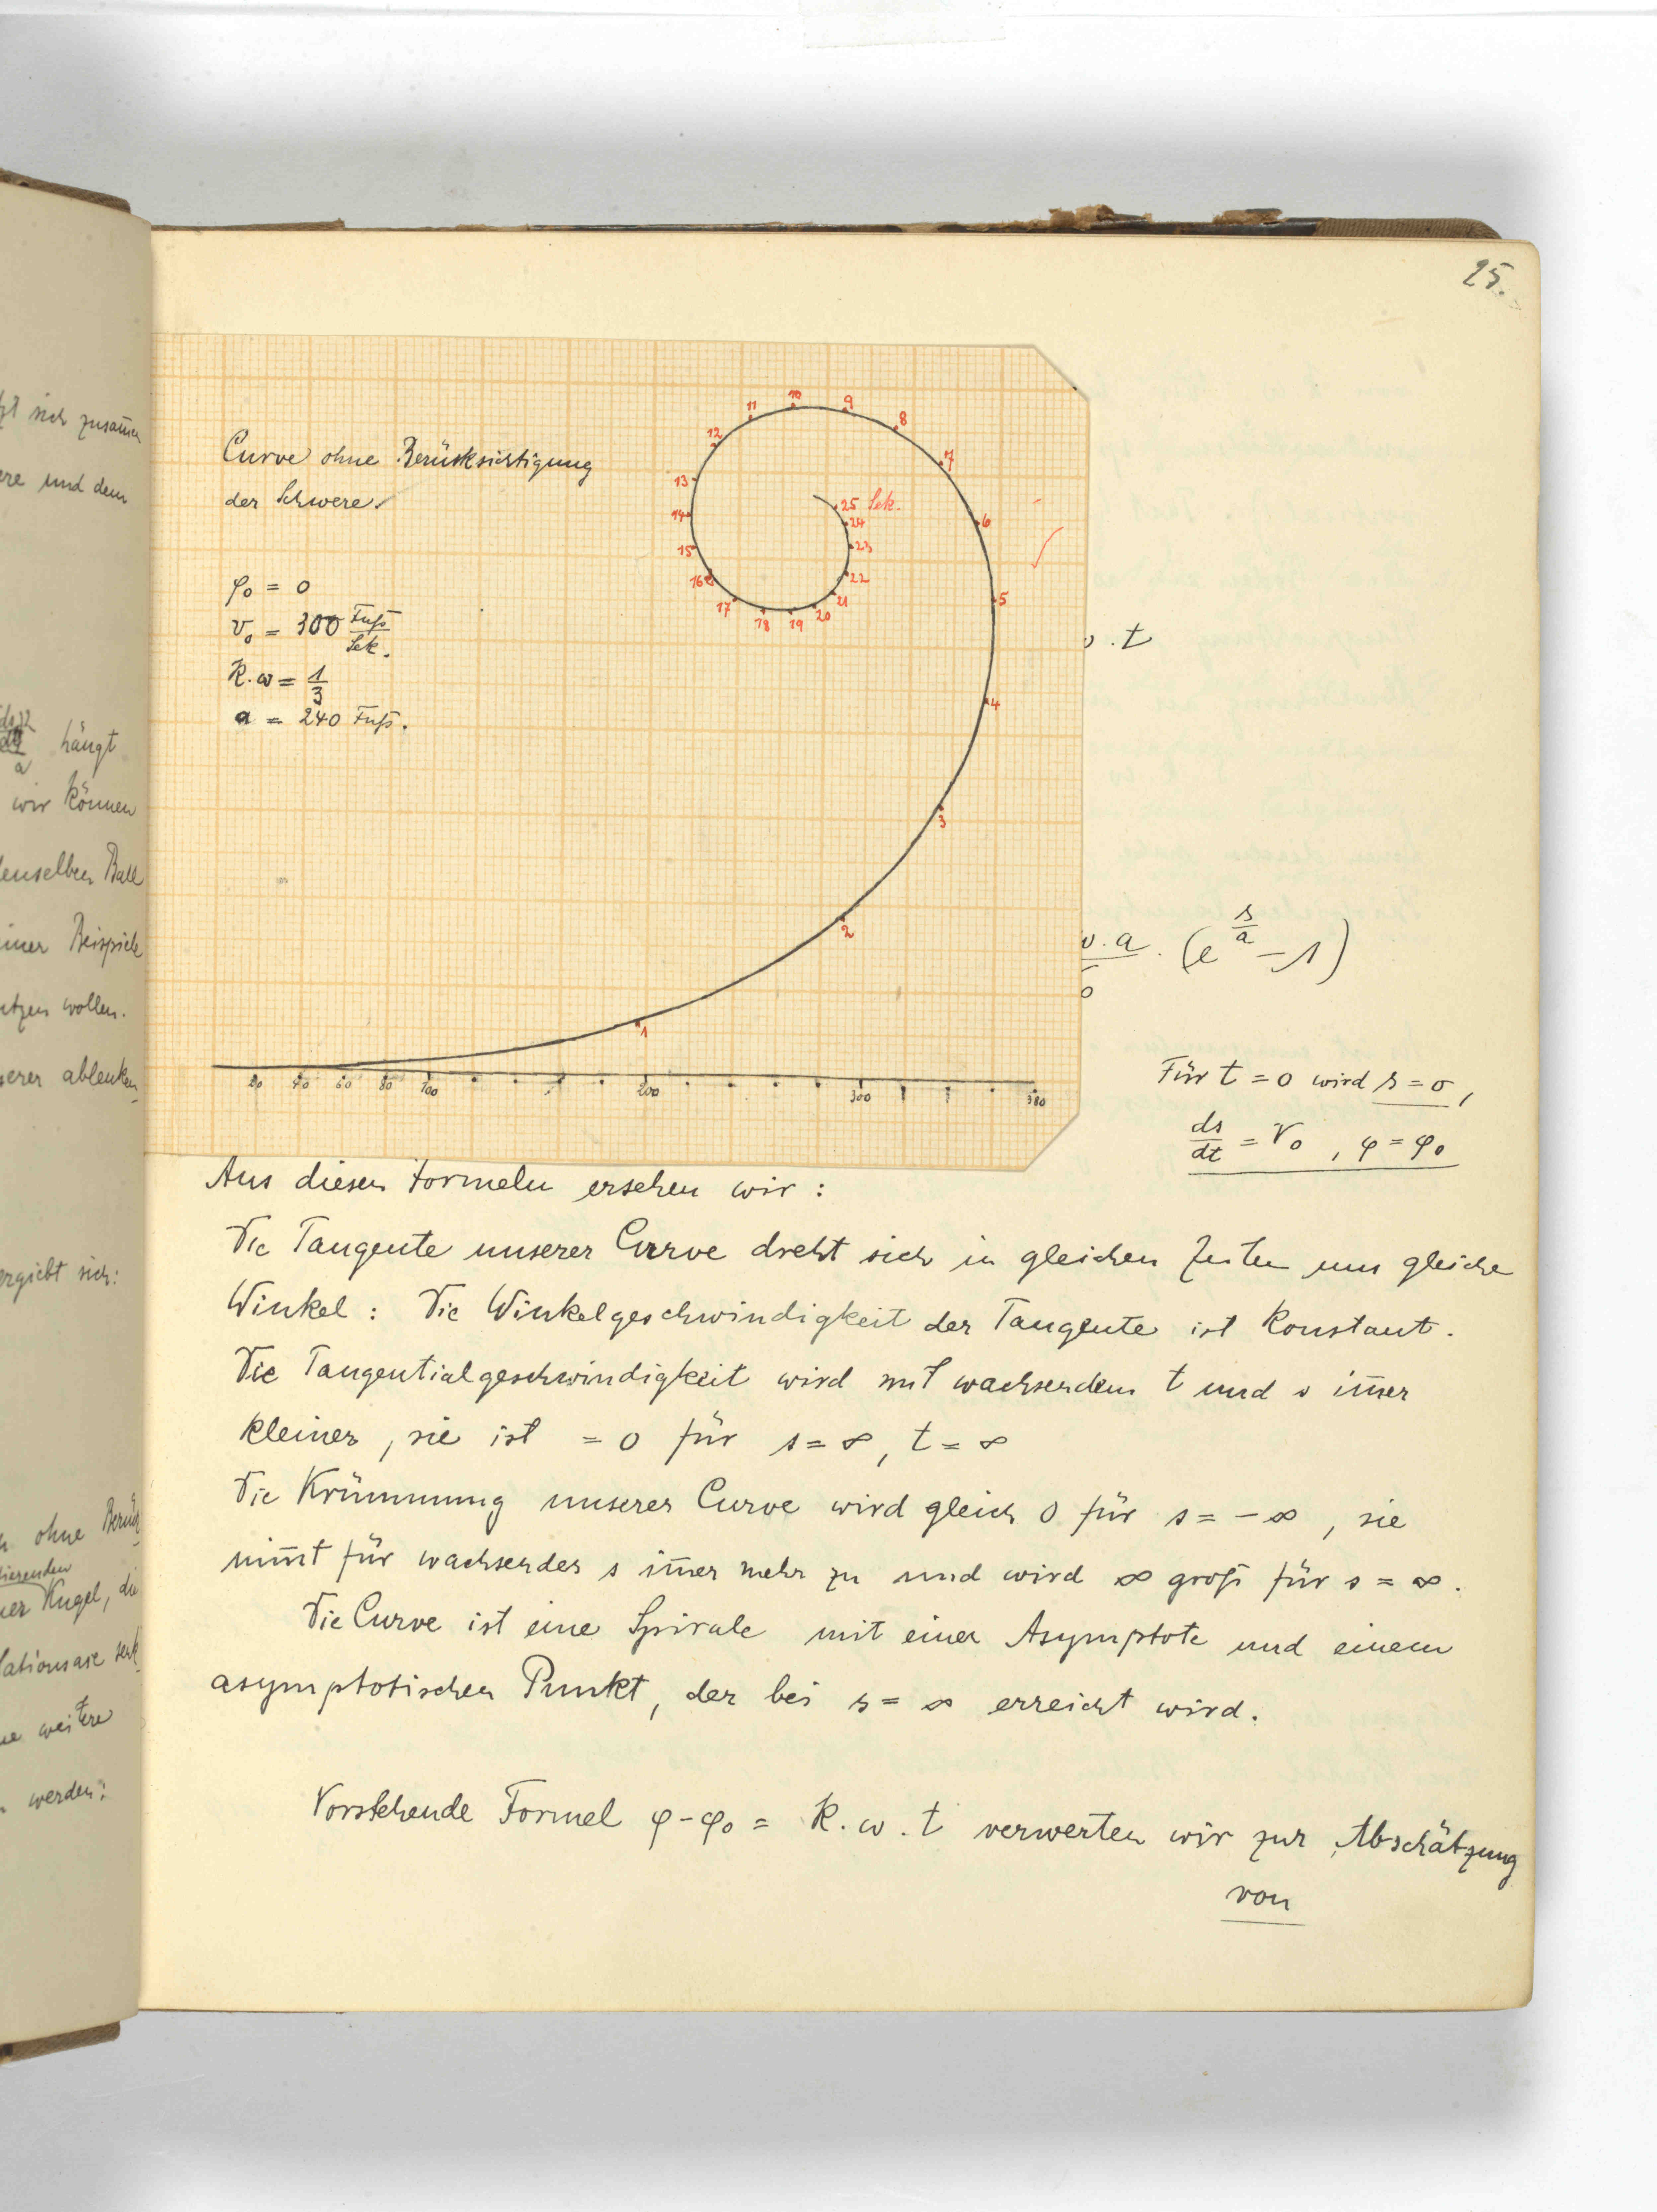 25.
zt sich zusam̅en
ere und dem
hängt
a
wir können
denselben Ball
einer Beispiele
utzen wollen.
serer ablenken
ergiebt sich:
ohne Berück
ner Kugel, die
tationsaxe senk
ne weitere
werden:
Curve ohne Berücksichtigung
der Schwere.
φ₀ = 0
v₀ = 300 Fuß/Sek.
k.ω = 1/3
a = 240 Fuß.
10
9
11
8
12
7
13
25 Sek.
14
24
6
15
23
16
22
17
21
18 19 20
5
4
3
2
1
20 40 60 80 100 200 300 380
. t
. a . (e^(s/a) - 1)
0
Für t = 0 wird s = 0,
ds/dt = v₀ , φ = φ₀
Aus diesen Formeln ersehen wir :
Die Tangente unserer Curve dreht sich in gleichen Zeiten um gleiche
Winkel : Die Winkelgeschwindigkeit der Tangente ist konstant.
Die Tangentialgeschwindigkeit wird mit wachsendem t und s im̅er
kleiner, sie ist = 0 für s = ∞, t = ∞
Die Krümmung unserer Curve wird gleich 0 für s = - ∞ , sie
nim̅t für wachsendes s im̅er mehr zu und wird ∞ groß für s = ∞.
Die Curve ist eine Spirale mit einer Asymptote und einem
asymptotischen Punkt, der bei s = ∞ erreicht wird.
Vorstehende Formel φ - φ₀ = k. ω . t verwerten wir zur Abschätzung
von